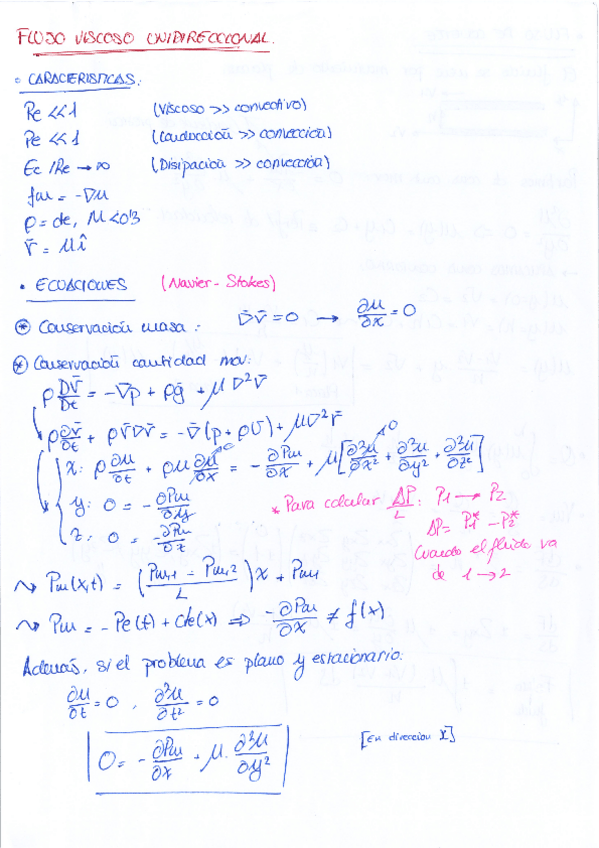 FLUJO VISCOSO UNIDIRECCIONAL.
• CARACTERISTICAS:
Re <<1 (Viscoso >> convectivo)
Pe <<1 (Conducción >> convección)
Ec/Re → ∞ (Disipación >> convección)
fm = -∇u
ρ = cte, M<0'3
v̄ = u î
• ECUACIONES (Navier-Stokes)
⊛ Conservación masa: ∇̄v̄ = 0 → ∂u/∂x = 0
⊛ Conservación cantidad mov:
ρ Dv̄/Dt = -∇̄p + ρḡ + μ∇²v̄
ρ ∂v̄/∂t + ρv̄∇v̄ = -∇̄(p + ρU) + μ∇²v̄
x: ρ ∂u/∂t + ρu ∂u/∂x = -∂Pm/∂x + μ[∂²u/∂x² + ∂²u/∂y² + ∂²u/∂z²]
y: 0 = -∂Pm/∂y
z: 0 = -∂Pm/∂z
* Para calcular ΔP/L: P1 → P2
ΔP = P1* - P2*
Cuando el fluido va
de 1 → 2
↝ Pm(x,t) = (Pm,1 - Pm,2 / L) x + Pm1
↝ Pm = -Pe(t) + cte(x) ⟹ -∂Pm/∂x ≠ f(x)
Además, si el problema es plano y estacionario:
∂u/∂t = 0 , ∂²u/∂t² = 0
0 = -∂Pm/∂x + μ · ∂²u/∂y² [En dirección x]